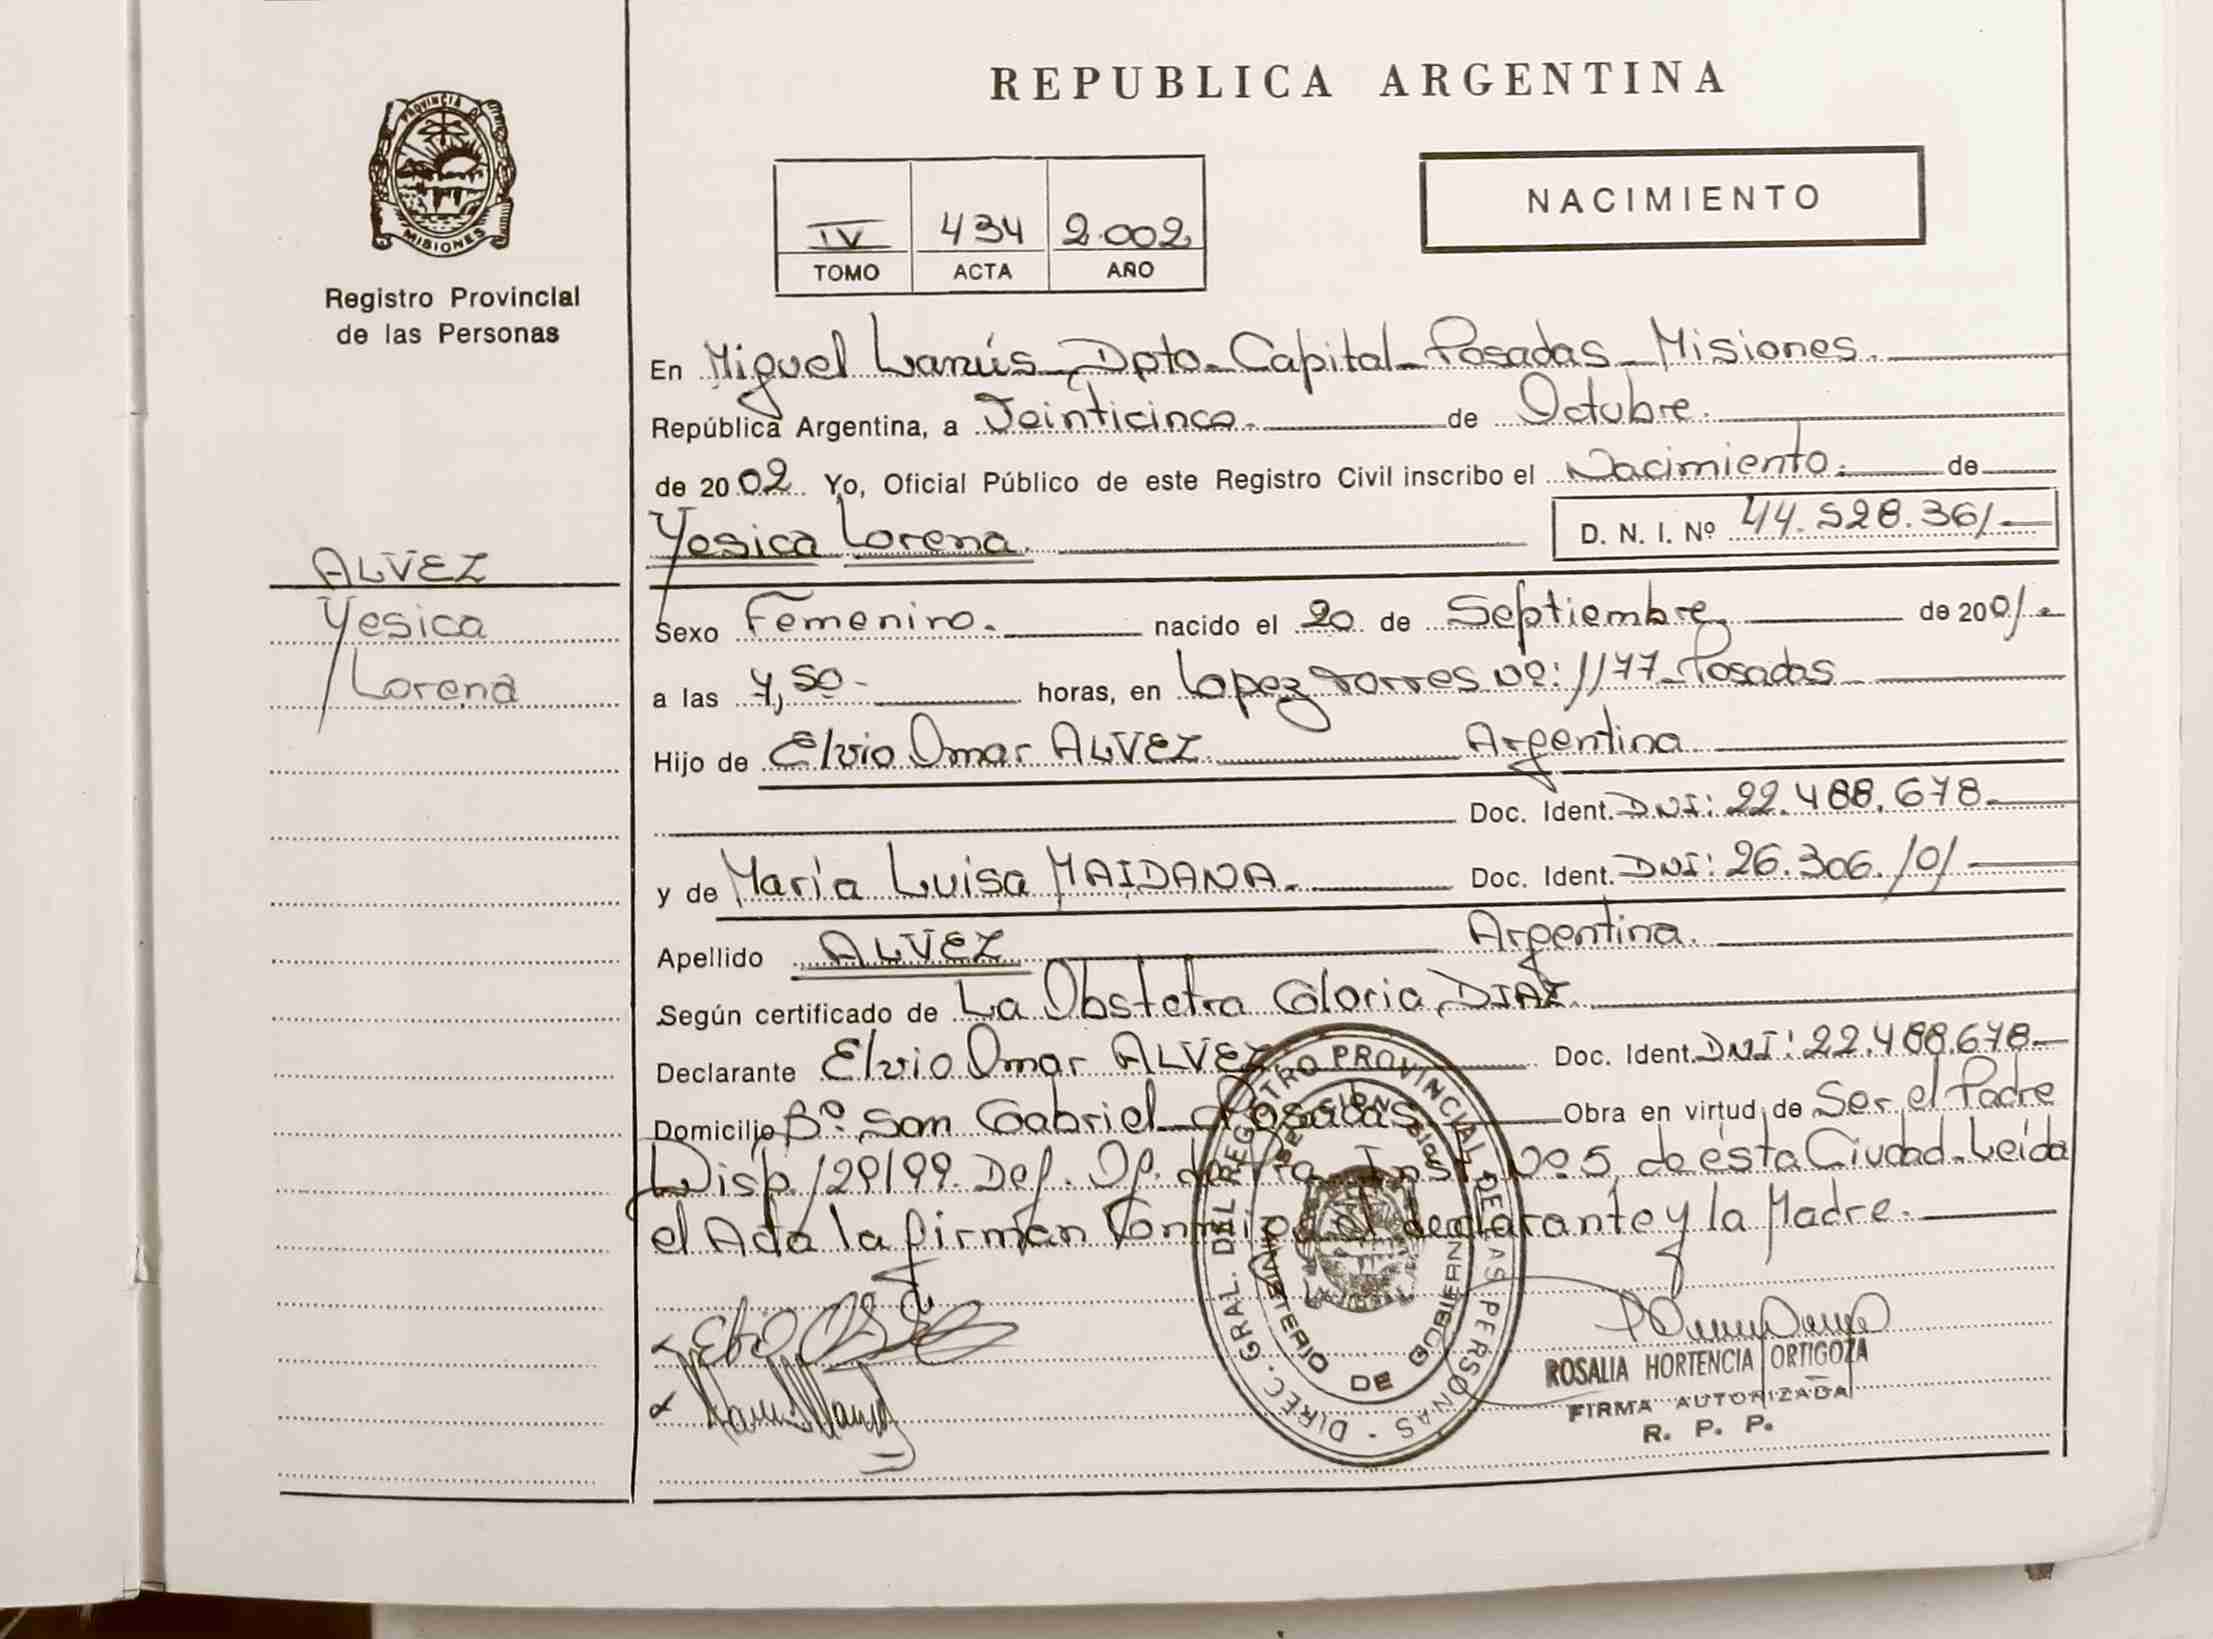 REPUBLICA ARGENTINA
PROVINCIA DE
MISIONES
Registro Provincial
de las Personas
IV 434 2.002
TOMO ACTA AÑO
NACIMIENTO
En Miguel Lanús Dpto. Capital Posadas Misiones.
República Argentina, a Veinticinco. de Octubre.
de 2002 Yo, Oficial Público de este Registro Civil inscribo el Nacimiento. de
Yesica Lorena. D. N. I. Nº 44.528.361
ALVEZ
Yesica
Lorena
Sexo Femenino. nacido el 20 de Septiembre de 2001
a las 7,50 horas, en Lopez Torres Nº: 1177 Posadas
Hijo de Elvio Omar ALVEZ. Argentina
Doc. Ident. DNI: 22.488.678
y de María Luisa MAIDANA. Doc. Ident. DNI: 26.306.101
Apellido ALVEZ Argentina.
Según certificado de La Obstetra Gloria DIAZ.
Declarante Elvio Omar ALVEZ Doc. Ident. DNI: 22.488.678
Domicilio Bº San Gabriel Posadas. Obra en virtud de Ser el Padre
Disp. 129/99. Def. Of. de Inst. Nº 5 de ésta Ciudad. Leída
el Acta la firman Conmigo el declarante y la Madre.
DIREC. GRAL. DEL REGISTRO PROVINCIAL DE LAS PERSONAS
MINISTERIO DE GOBIERNO
ROSALIA HORTENCIA ORTIGOZA
FIRMA AUTORIZADA
R. P. P.